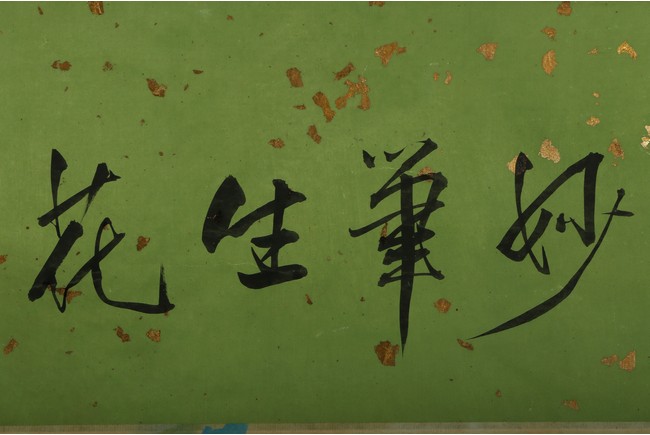 妙筆生花